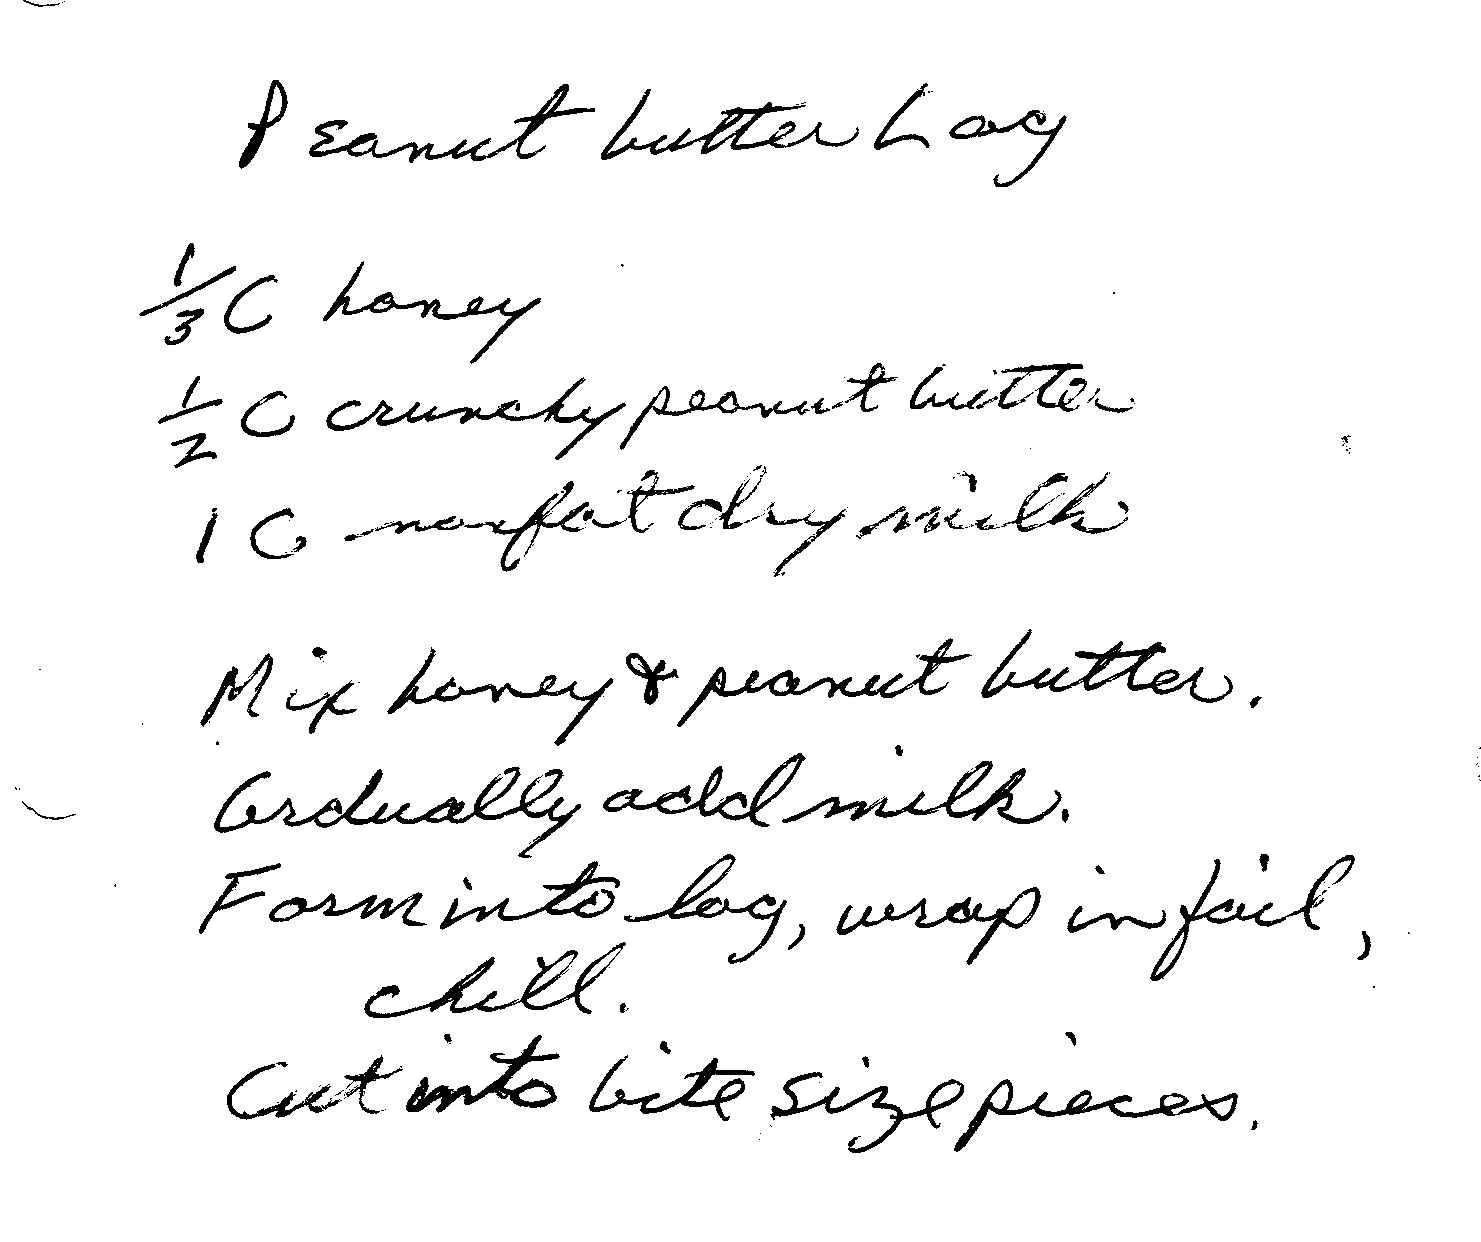 Peanut butter Log
1/3 C honey
1/2 C crunchy peanut butter
1 C nonfat dry milk
Mix honey & peanut butter.
Grdually add milk.
Form into log, wrap in foil,
chill.
Cut into bite size pieces.